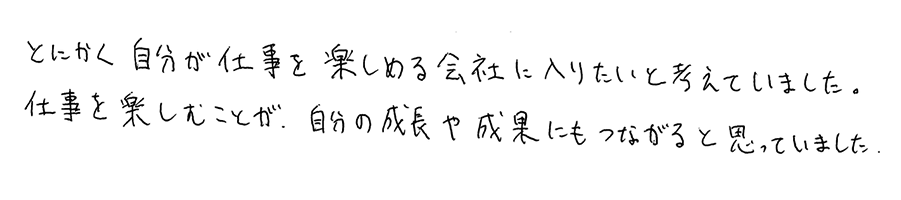 とにかく自分が仕事を楽しめる会社に入りたいと考えていました。
仕事を楽しむことが、自分の成長や成果にもつながると思っていました.